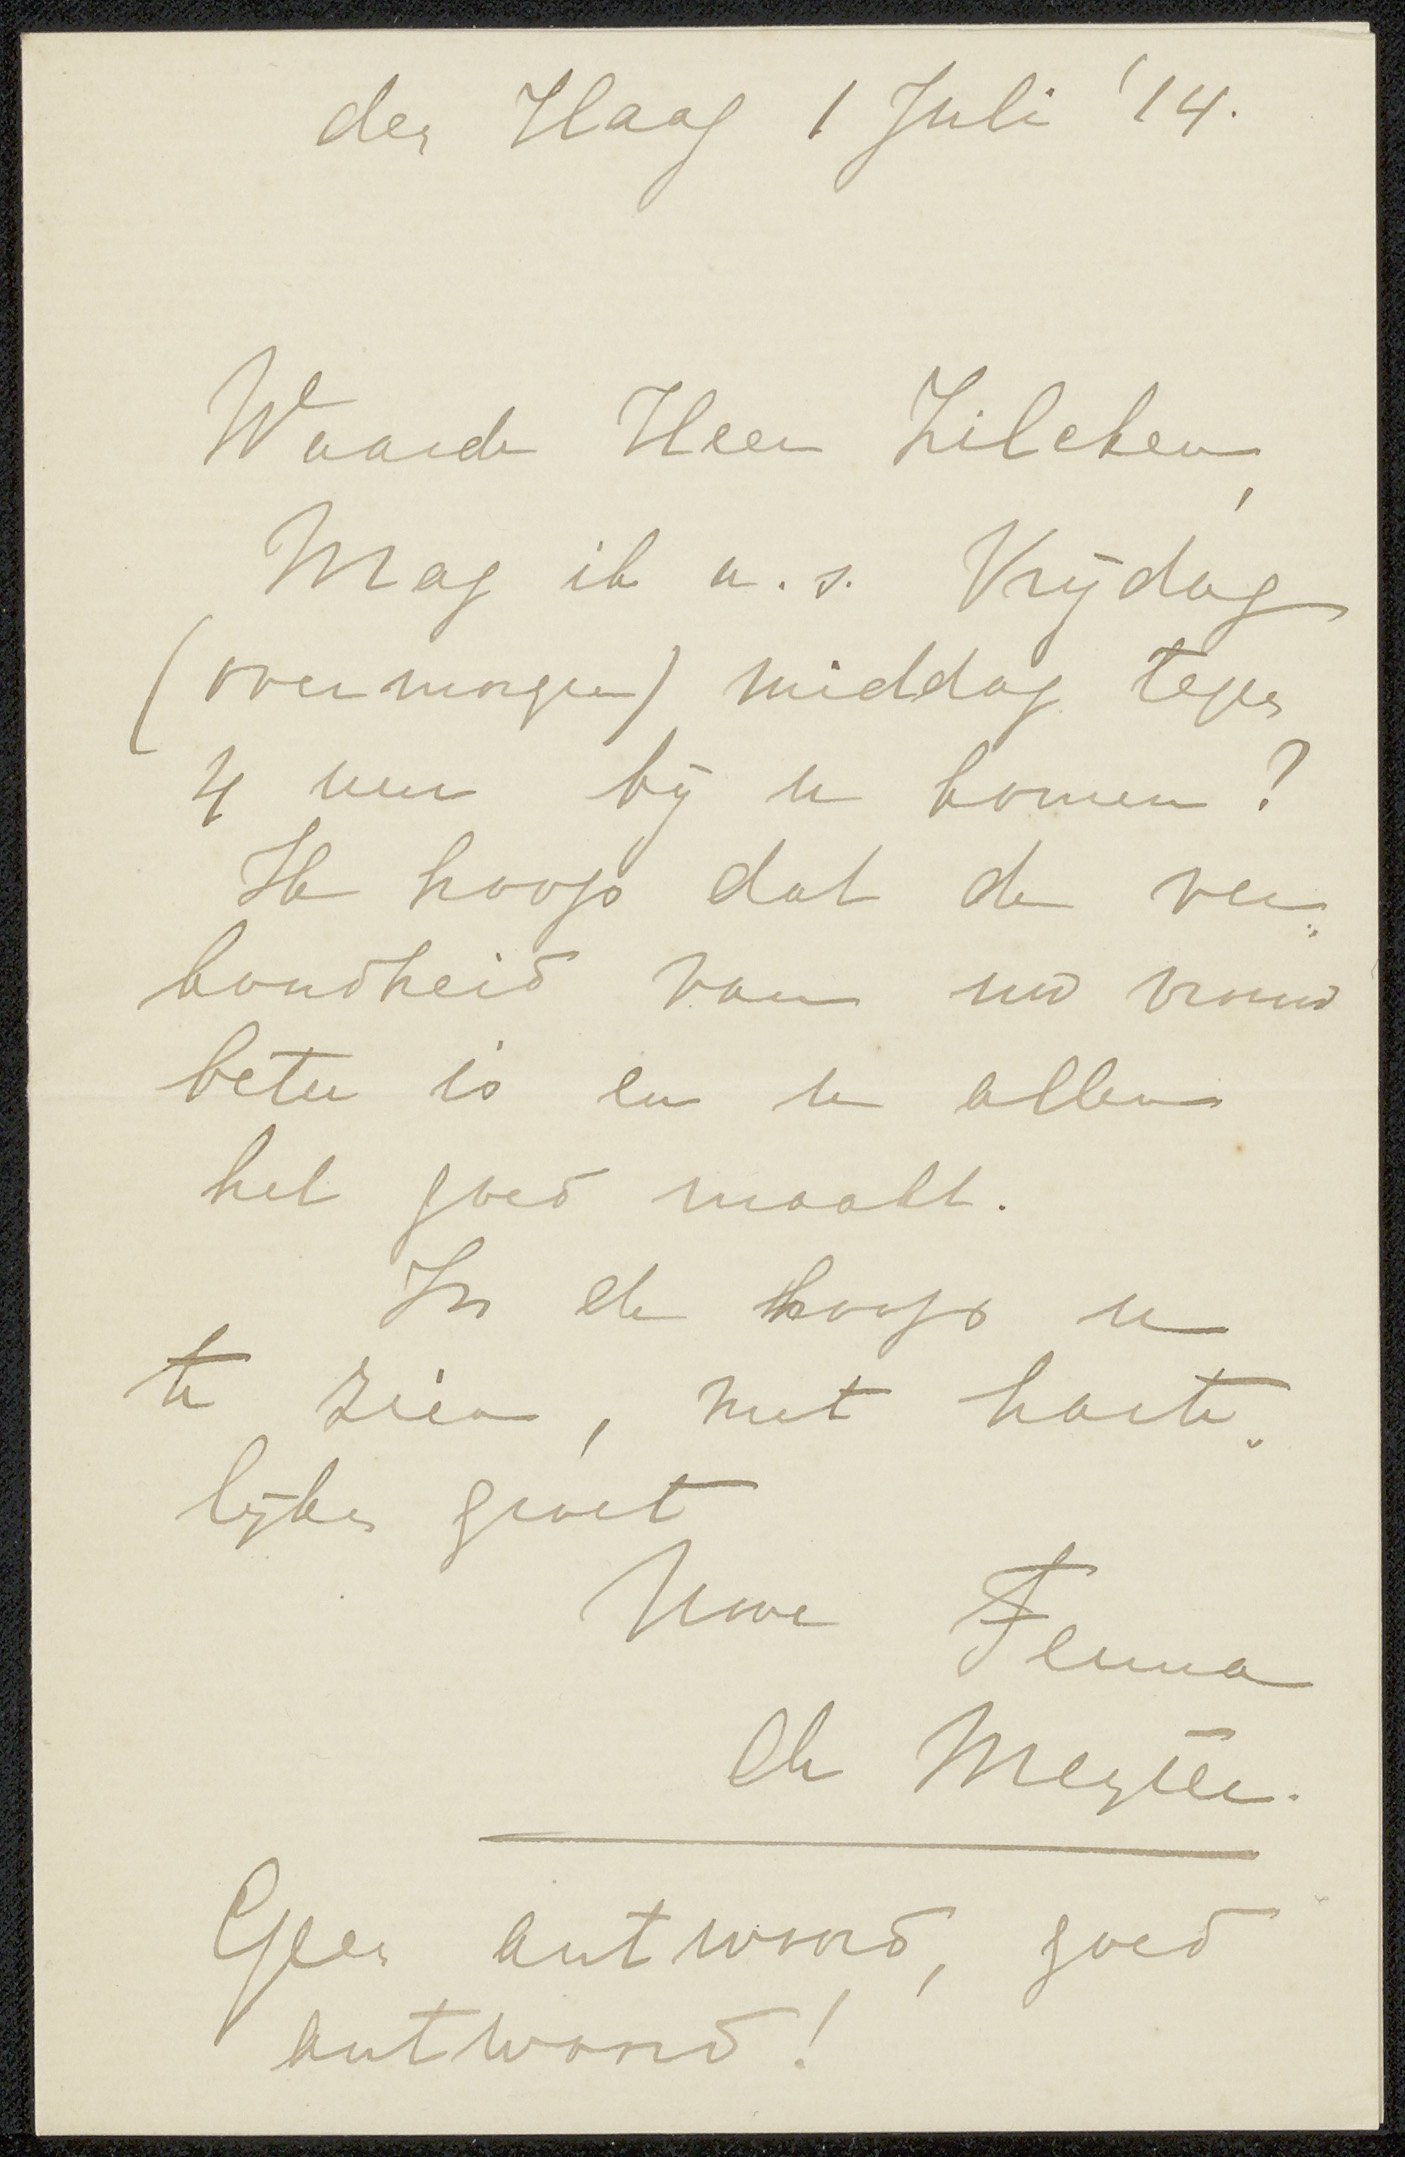 den Haag 1 Juli '14.
Waarde Heer Zilcken,
Mag ik a.s. Vrijdag
(overmorgen) middag tegen
4 uur bij u komen?
Ik hoop dat de ver-
koudheid van uw vrouw
beter is en u allen
het goed maakt.
In de hoop u
te zien, met harte-
lijken groet
Uwe Fenna
de Meyier.
Geen antwoord, goed
antwoord!